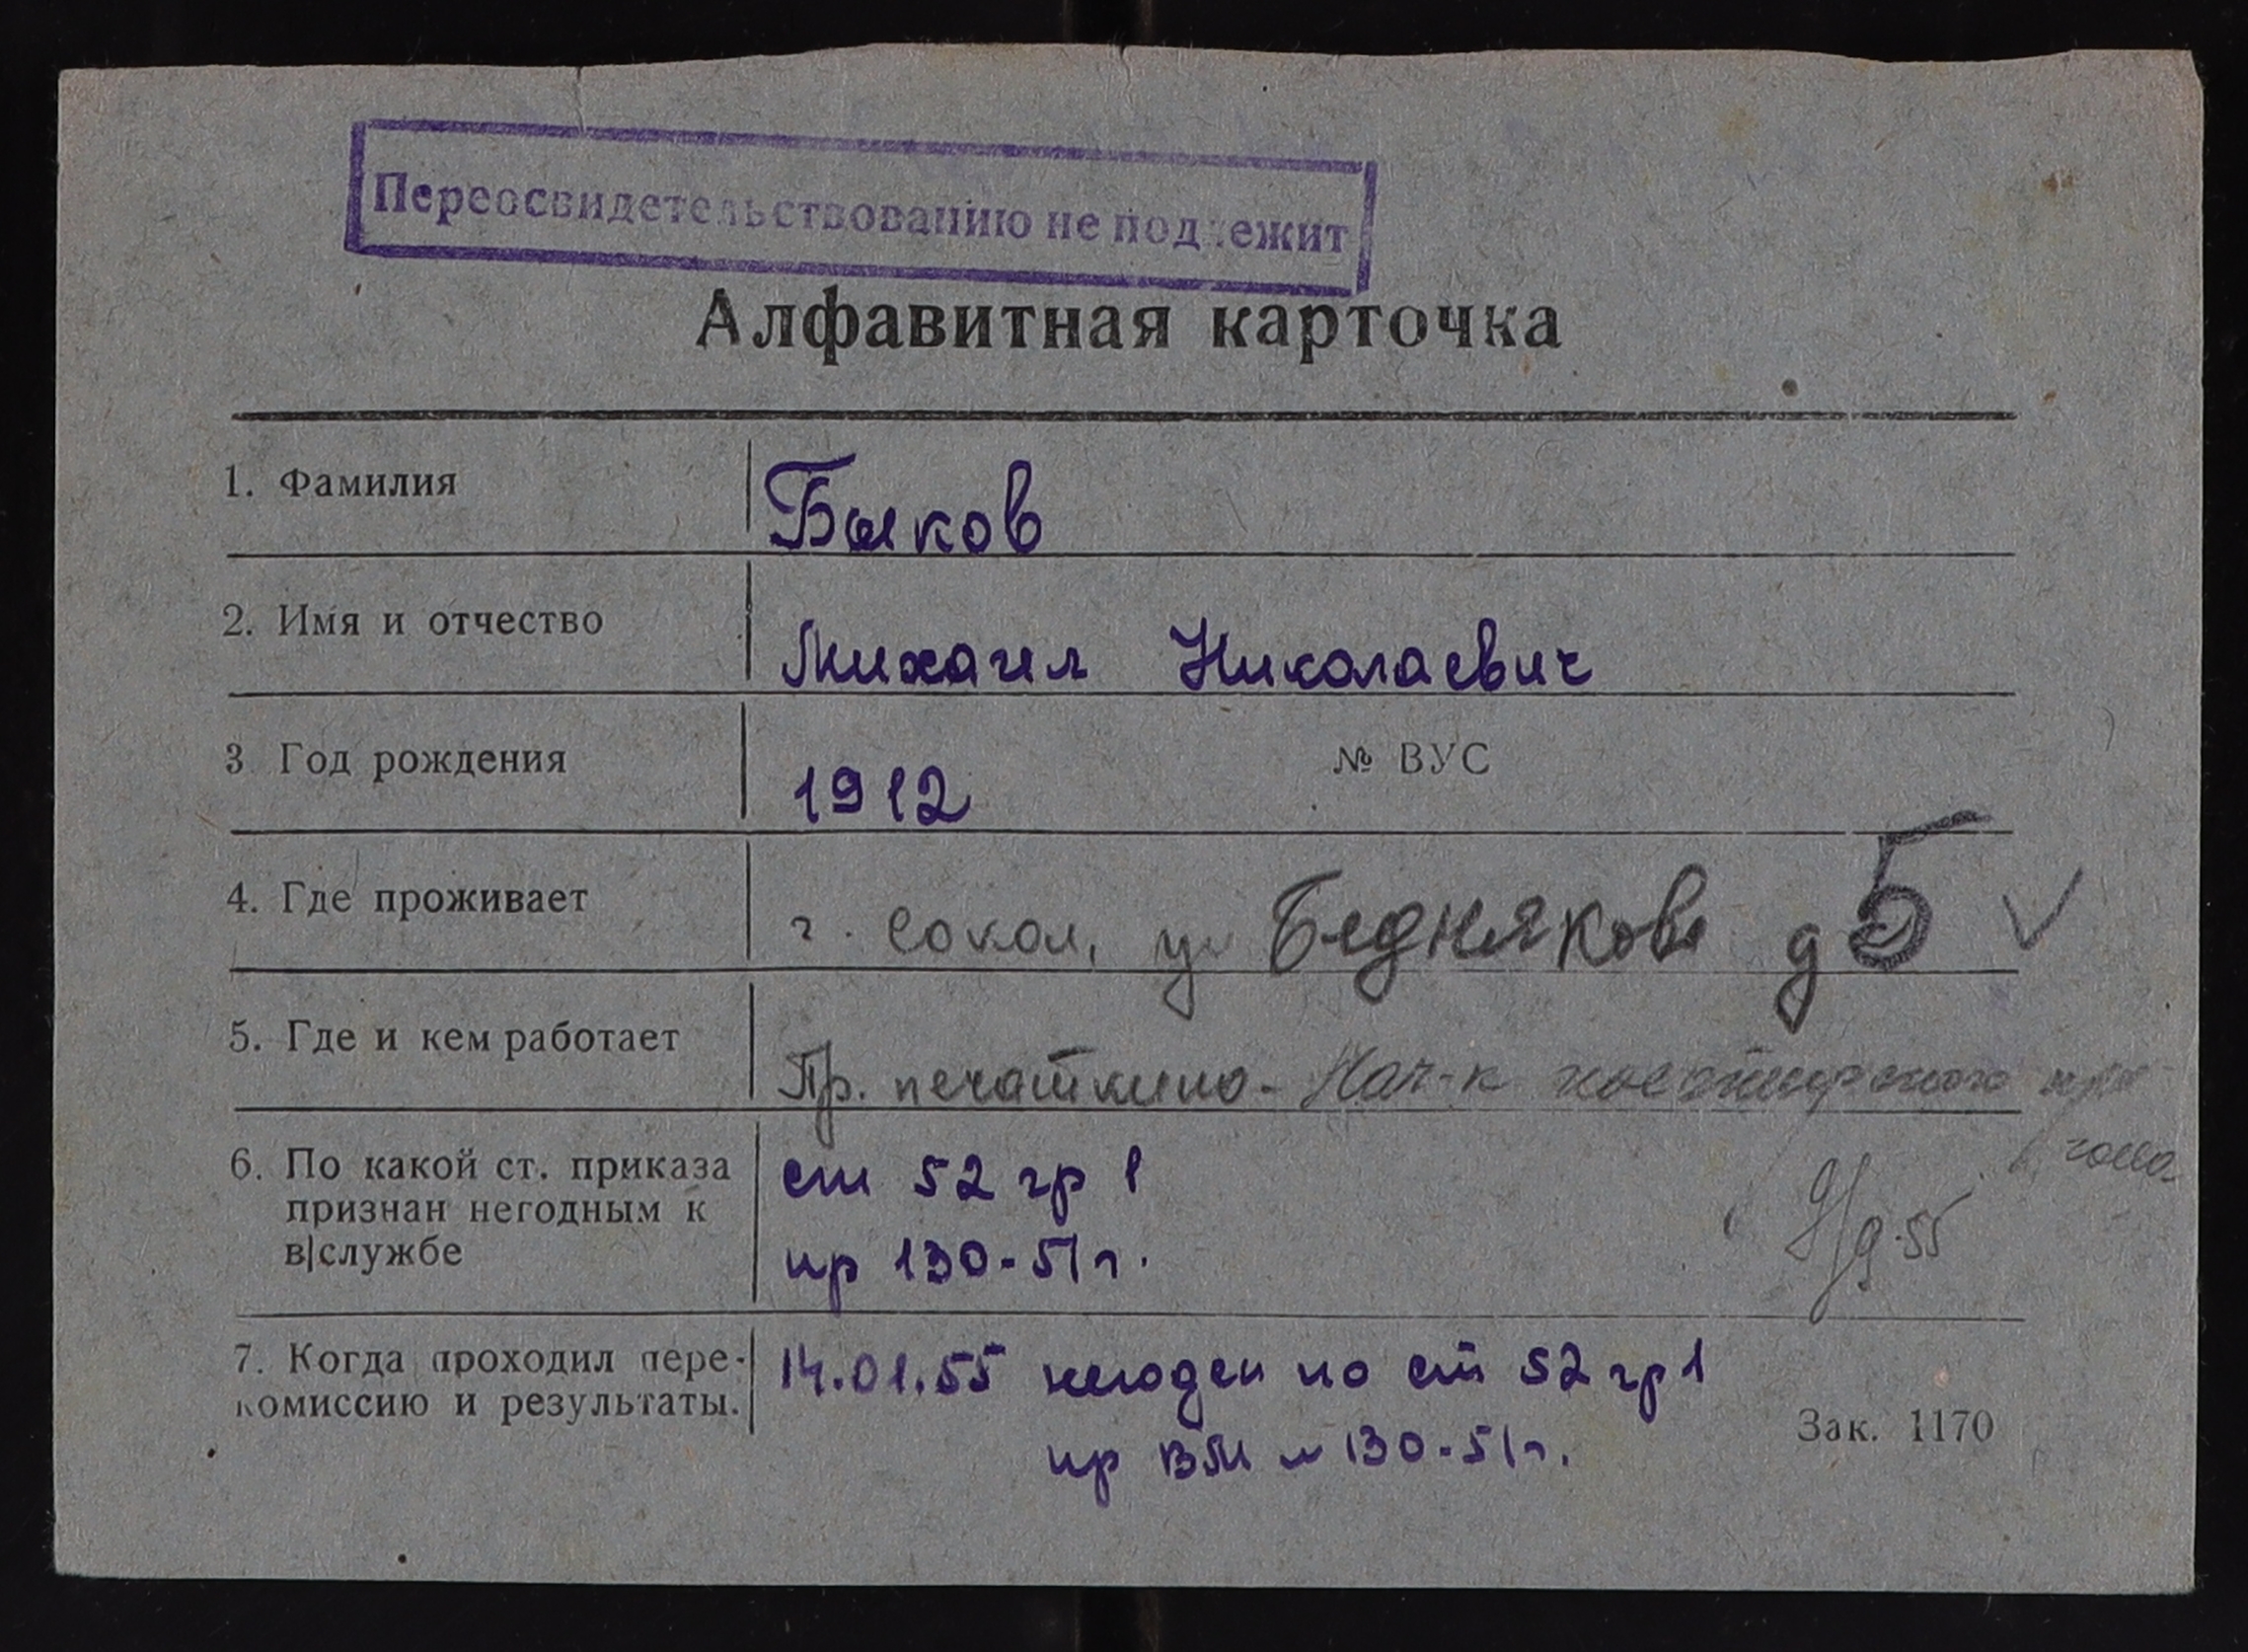 Переосвидетельствованию не подлежит
Алфавитная карточка
1. Фамилия Быков
2. Имя и отчество Михаил Николаевич
3 Год рождения 1912 № ВУС
4. Где проживает г. Сокол, ул Бедняков д 5 ✓
5. Где и кем работает Пр. печаткино - Нач-к
6. По какой ст. приказа ст 52 гр 1
признан негодным к
в|службе пр 130-51г.
7. Когда проходил пере- 14.01.55 негоден по ст 52 гр 1
комиссию и результаты.
Зак. 1170
пр ВМ № 130-51г.